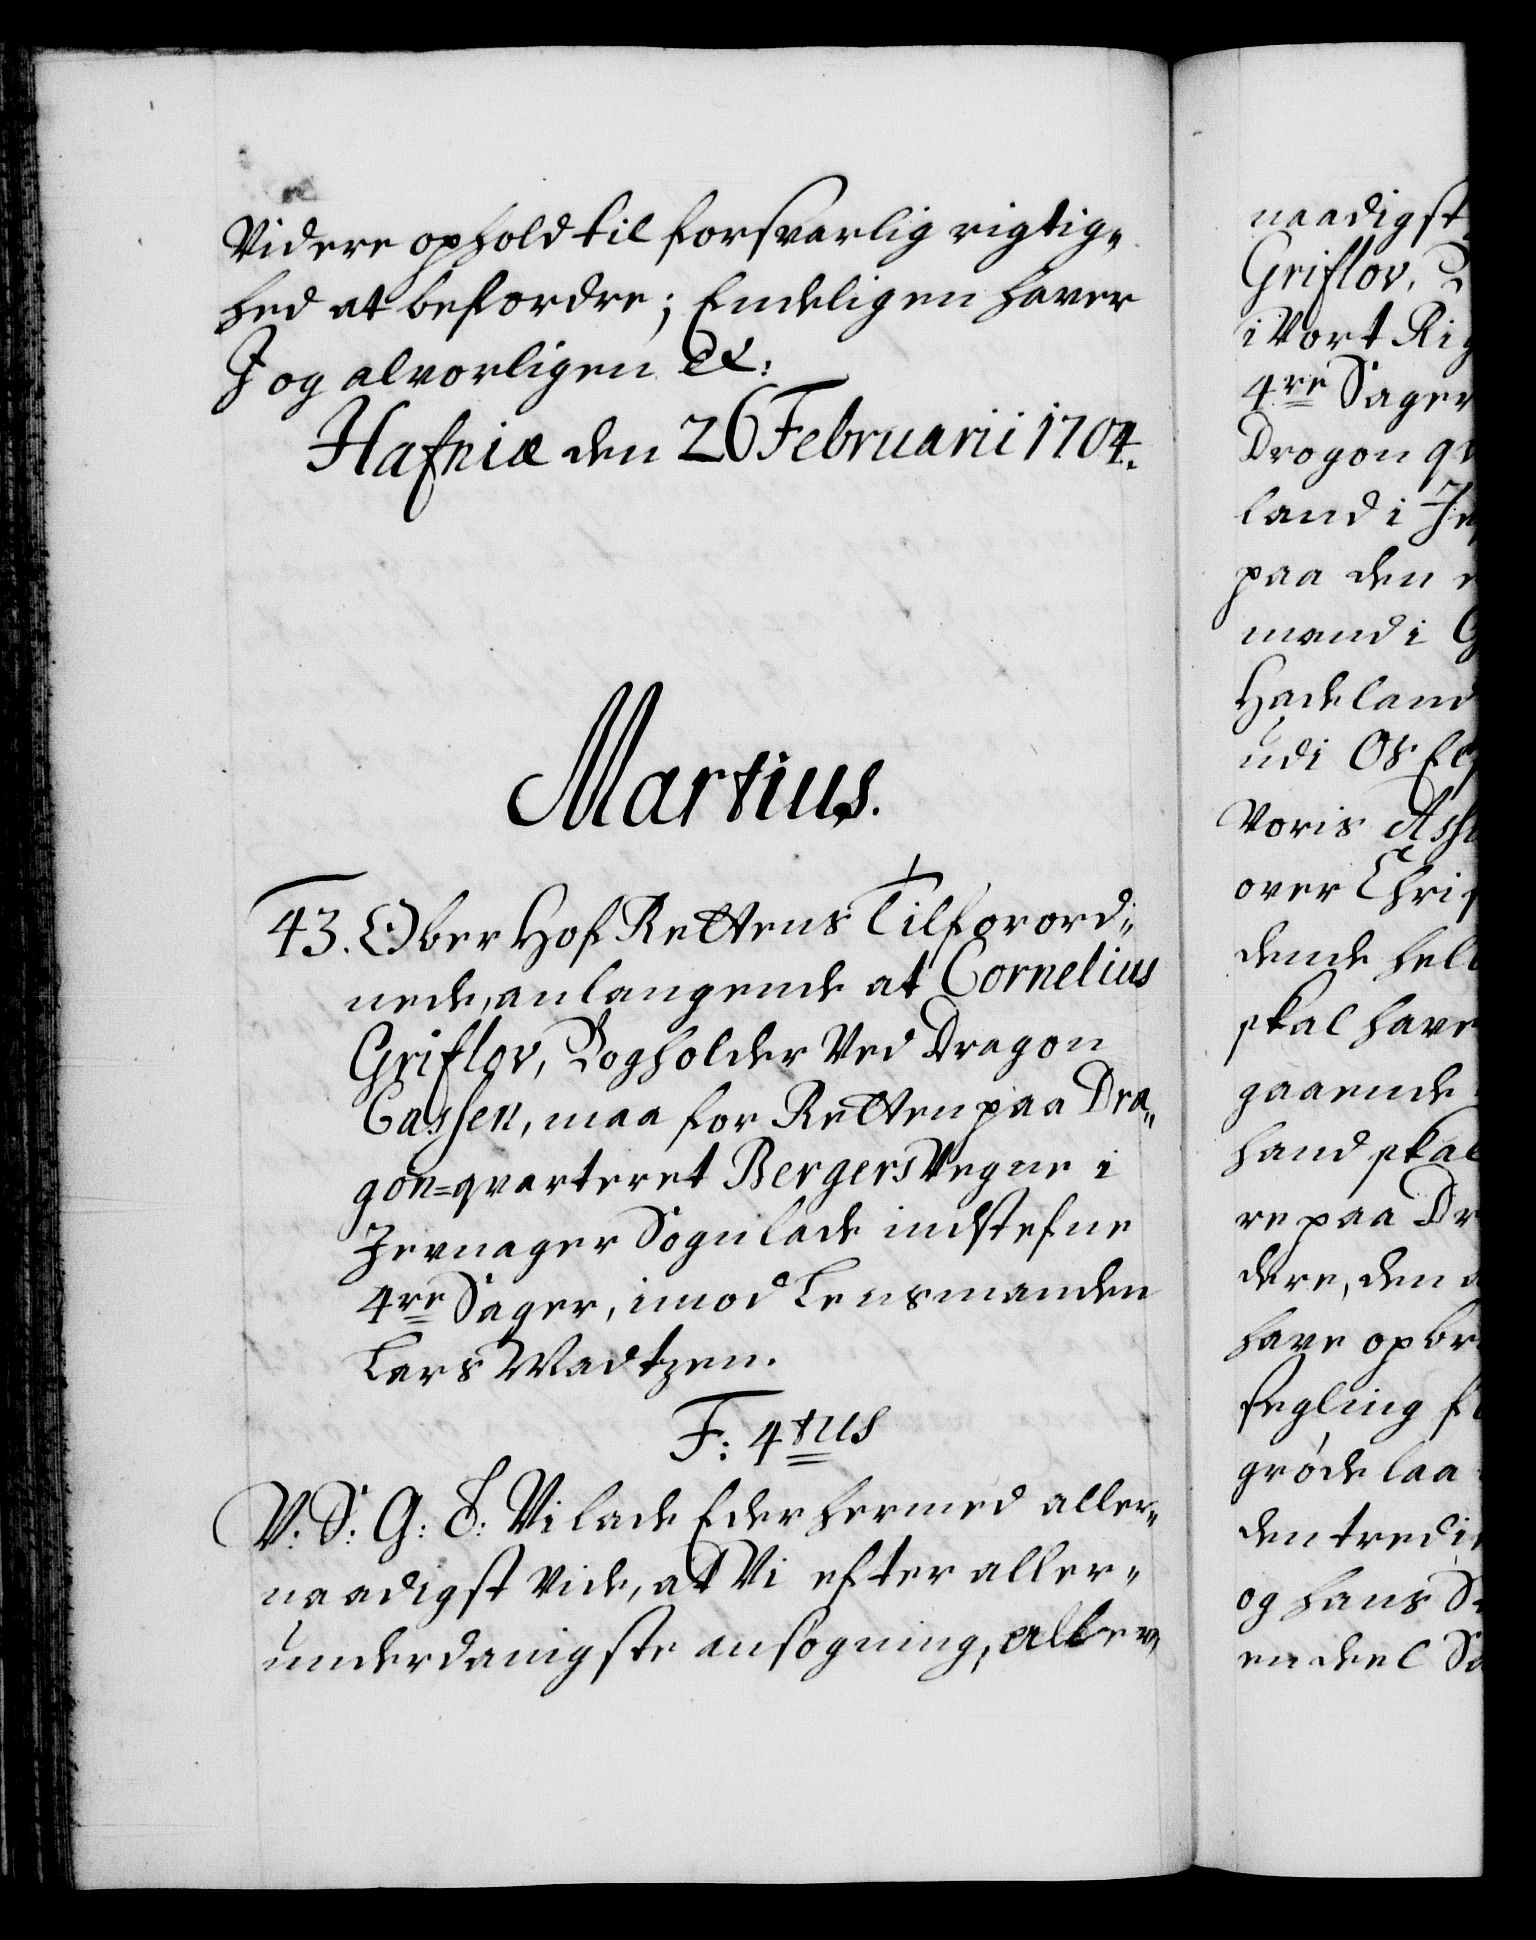 Videre ophold til forsvarlig rigtig„
hed at befordre; Endeligen haver
I og alvorligen &c:
Hafniæ den 26 Februarii 1704.
Martius.
43. Ober Hof Rettens Tilforord„
nede, anlangende at Cornelius
Griflov, Bogholder Ved Dragon
Cassen, maa for Retten paa Dra„
gon=qvarteret Bergers Vegne i
Jevnager Sogn lade indstefne
4re Sager, imod Lensmanden
Lars Madtzen.
F: 4tus
V. S. G: T: Vi lade Eder hermed aller„
naadigst Vide, at Vi efter aller„
underdanigste ansøgning, aller„
naadigst
Griflov, B
i Vort Rig
4re Sager
Dragon qv
land i Je
paa den
mand i G
Hadeland
udi Os El
Voris Asse
over Chri
dende hel
skal have
gaaende
hand skal
re paa Dr
dere, den
have opbr
segling f
grøde laa
den tredie
og hans S
en deel Sa